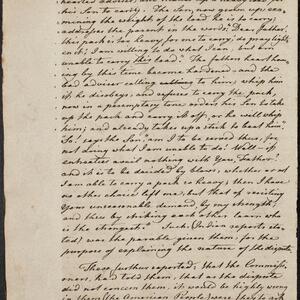 hearted adviser, and
his Son to carry. The Son, now grown up exa-
mining the weight of the load he is to carry;
addresses the parent in the words; "Dear father!
this pack is too heavy for me to carry, do pray lighten
it; I am willing to do what I can, but am
unable to carry this load." The fathers heart hav-
ing by this time become hardened — and the
bad adviser calling to him; whip him
if he disobeys, and refuses to carry the pack,
now in a peremptory tone orders his Son to take
up the pack and carry it off, or he will whip
him; and already takes up a stick to beat him."
So! says the Son, "am I to be served thus, for
not doing what I am unable to do! Well — if
entreaties avail nothing with You, Father!
and it is to be decided by blows, whether or not
I am able to carry a pack so heavy: then I have
no other choice left me, but that of resisting
Your unreasonable demand, by my strength:
and thus by striking each other learn who
is the strongest." Such, (Indian reports sta-
ted) was the parable given them, for the
purpose of explaining the nature of the dispute.
These further reported; that the Commissi-
oners, had told them, that as the dispute
did not concern them, it would be highly wrong
in them (the American People) were they to